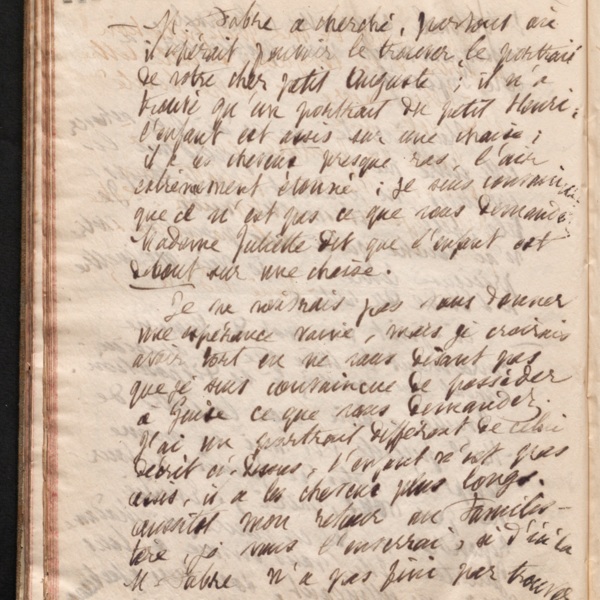 — M. Fabre a cherché, partout où
il espérait pouvoir le trouver, le portrait
de votre cher petit Auguste ; il n'a
trouvé qu'un portrait du petit Henri :
l'enfant est assis sur une chaise ;
il a les cheveux presque ras, l'air
extrêmement étonné ; je suis convaincue
que ce n'est pas ce que vous demandez.
Madame Juliette dit que l'enfant est
debout sur une chaise.
Je ne voudrais pas vous donner
une espérance vaine, mais je croirais
avoir tort en ne vous disant pas
que je suis convaincue de posséder
à Guise ce que vous demandez.
J'ai un portrait différent de celui
décrit ci-dessus, l'enfant n'est pas
assis, il a les cheveux plus longs.
aussitôt mon retour au Familis-
tère, je vous l'enverrai, si d'ici là
M. Fabre n'a pas fini par trouver